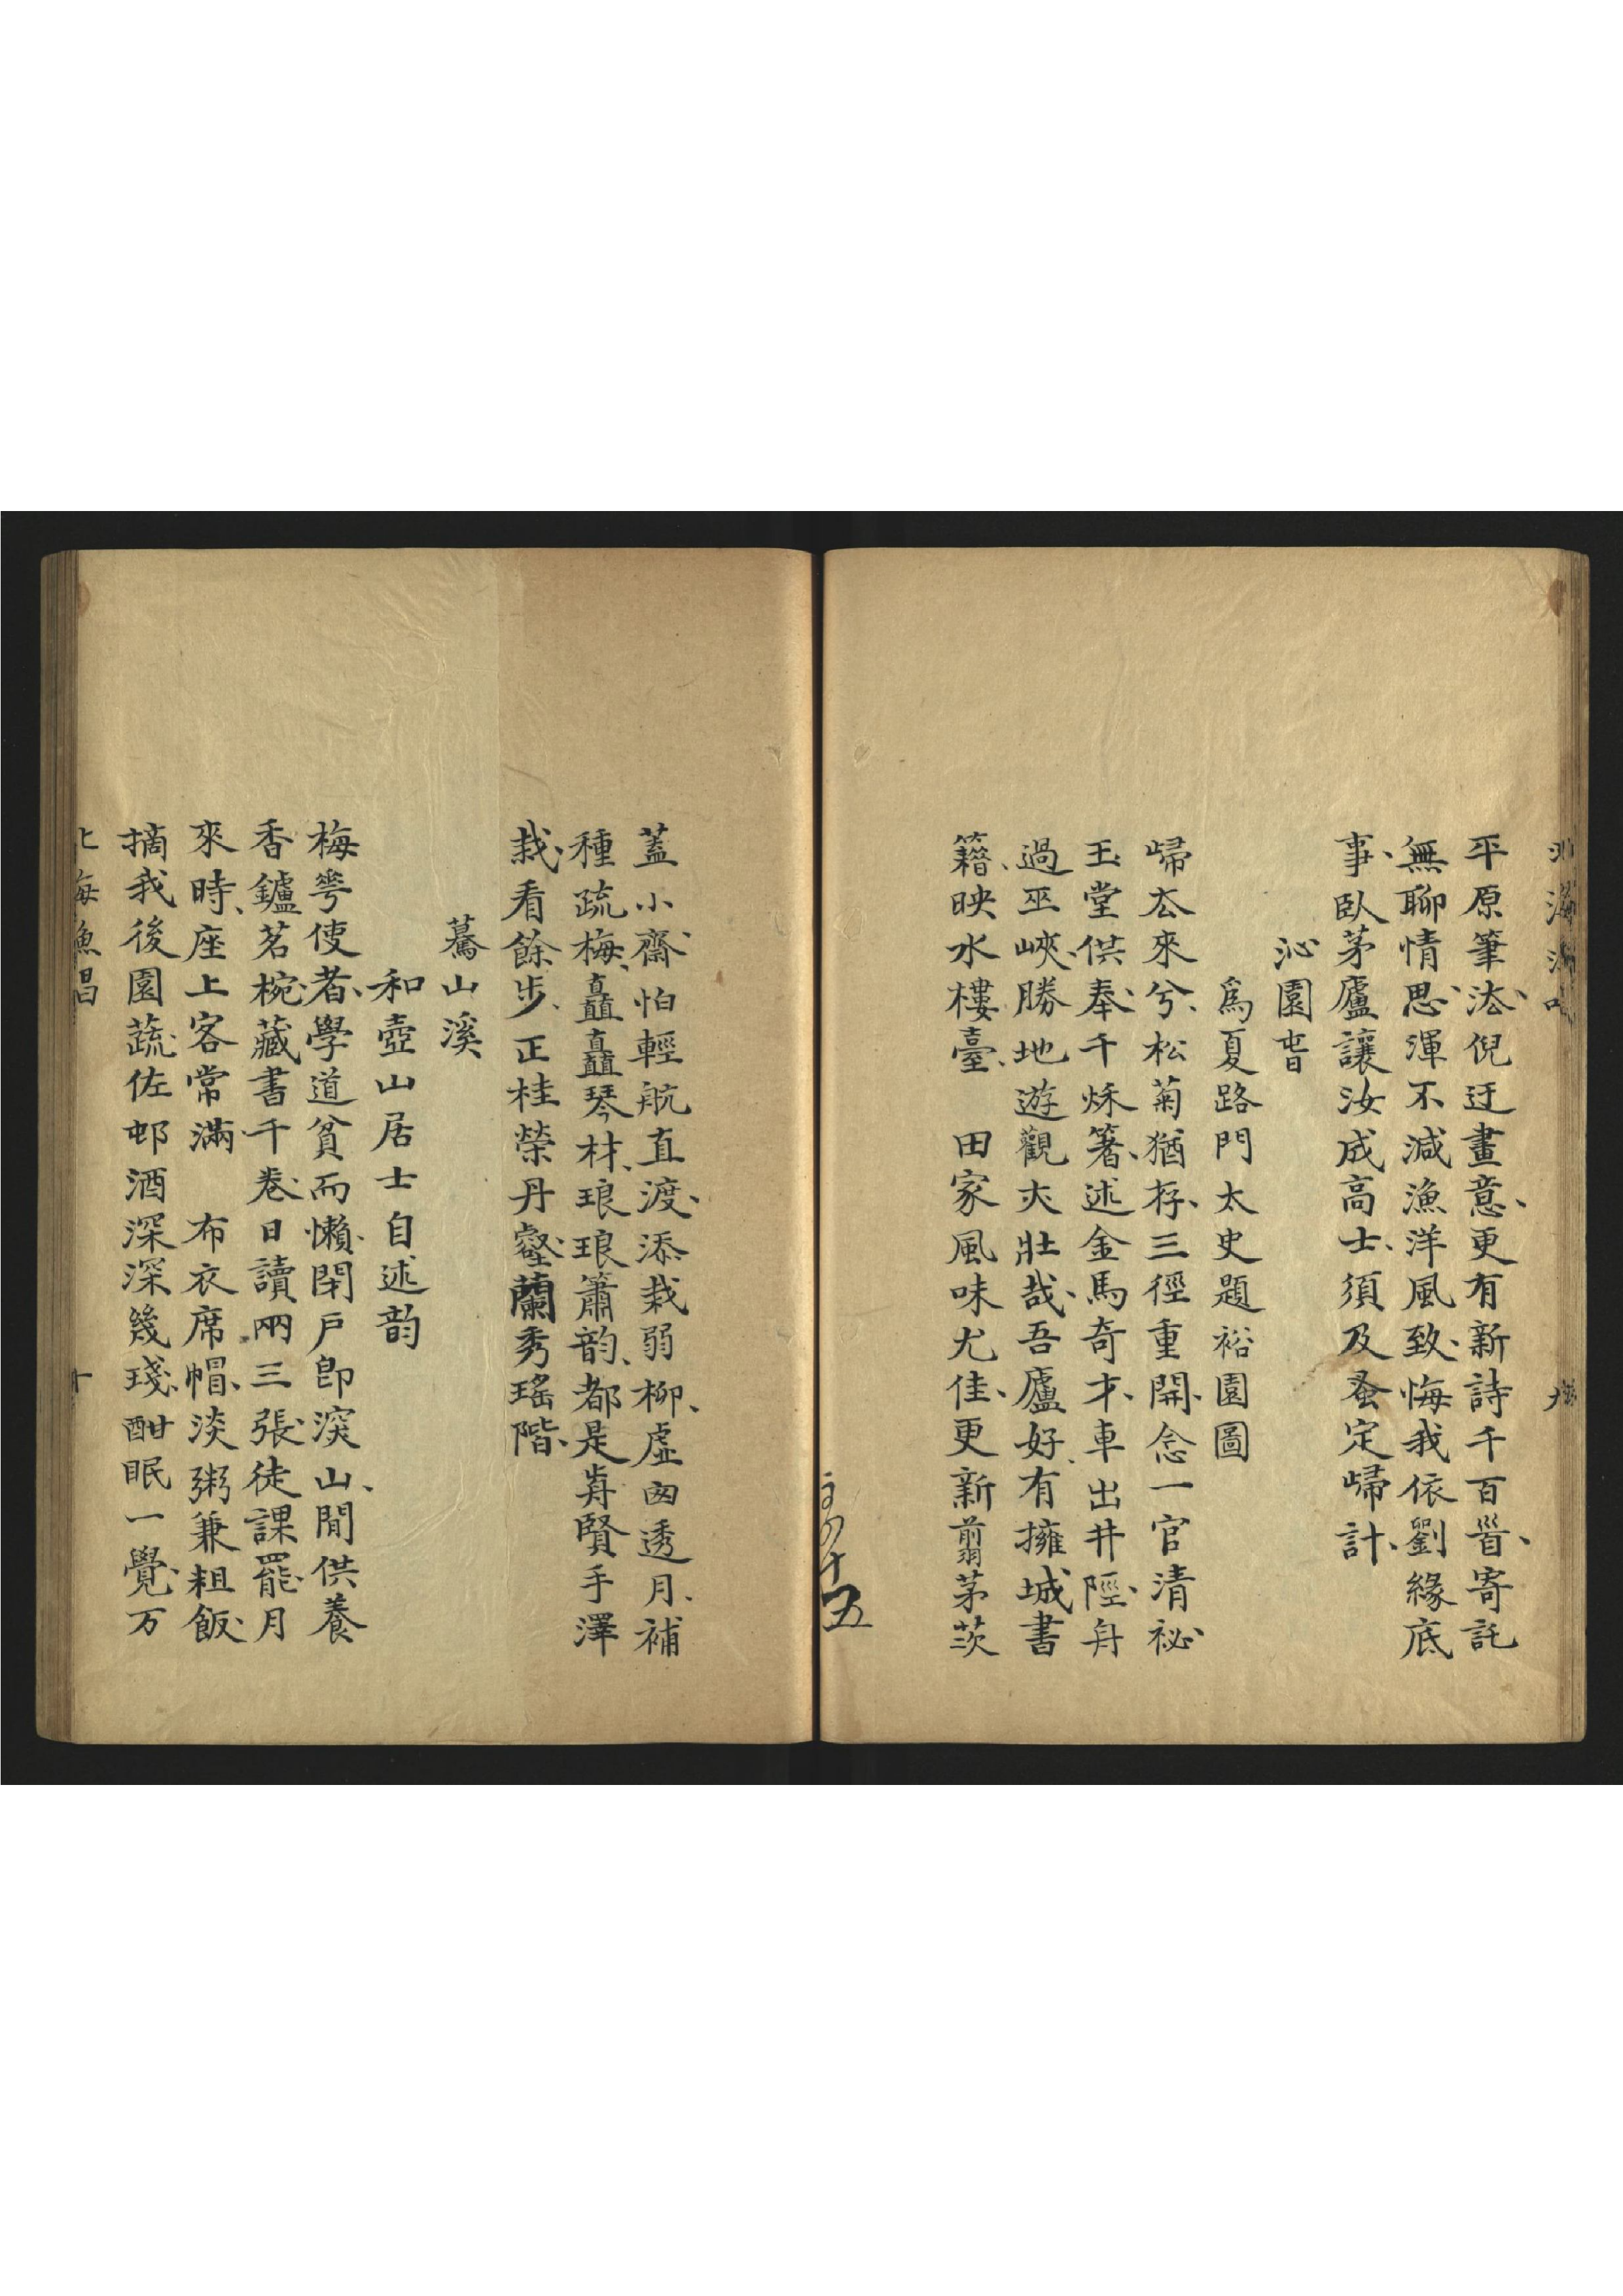 平原筆法、倪迂畫意、更有新詩千百首、寄託
無聊情思、渾不減漁洋風致、悔我依劉緣底
事、臥茅廬讓汝成高士、須及蚤定歸計、
沁園旾
爲夏路門太史題裕園圖
歸厺來兮、松菊猶存、三徑重開、念一官清祕、
玉堂供奉、千秌箸、述金馬奇才、車出井陘、舟
過巫峽、勝地遊觀夾壯哉、吾廬好、有擁城書
籍、映水樓臺、　田家風味尤佳、更新翦茅茨
十五
蓋小齋、怕輕航直渡、添栽弱柳、虛囪透月、補
種疏梅、矗矗琴材、琅琅簫韵、都是歬賢手澤
栽、看餘步、正桂榮丹壑、蘭秀瑤階、
驀山溪
和壺山居士自述韵
梅䔢使者、學道貧而懶、閉戶卽深山、閒供養
香鑪茗椀、藏書千卷、日讀兩三張、徒課罷、月
來時、座上客常滿、　布衣席帽、淡粥兼粗飯、
摘我後園蔬、佐邨酒深深幾琖、酣眠一覺、万
北海漁唱
十